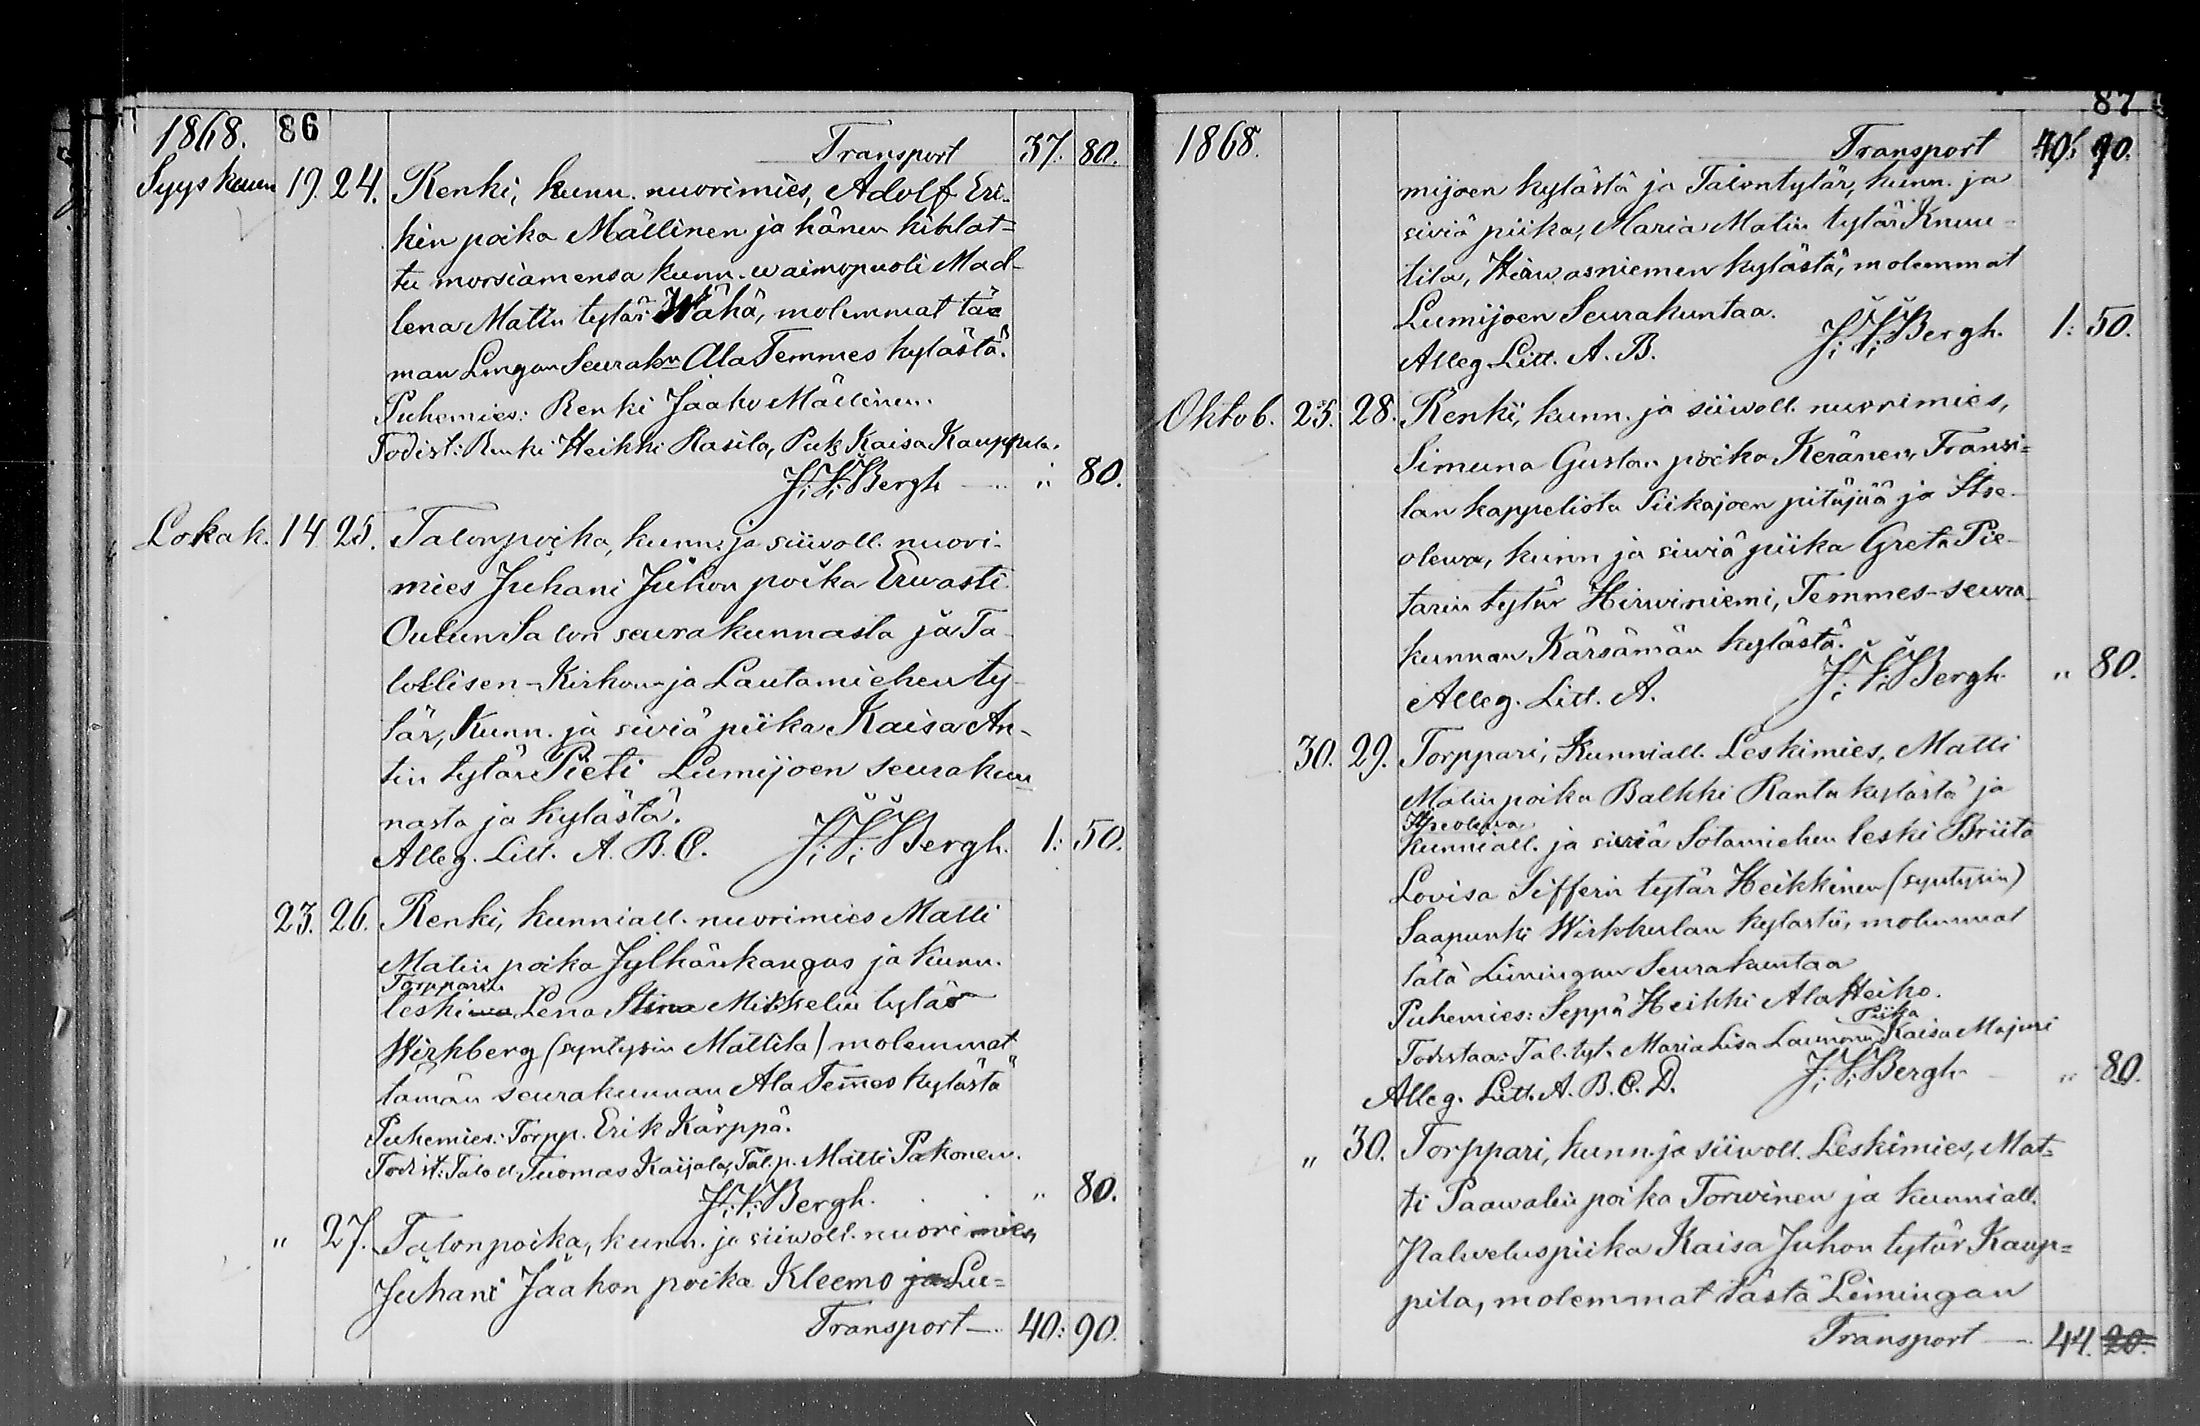 1868. 86
Transport 37. 80.
Syyskuun 19. 24. Renki, kunn. nuorimies, Adolf Eri-
kin poika Mällinen ja hänen kihlat=
tu morsiamensa kunn. waimopuoli Mad-
lena Matin tytär Wähä, molemmat tä=
män Lingan Seurakn Ala Temmes kylästä.
Puhemies: Renki Jaako Mällinen.
Todist: Renki Heikki Rasila, Kaisa Kauppila.
J. V. Bergh — " 80.
Lokak. 14 25. Talonpoika, kunn. ja siiwoll. nuori-
mies Juhani Juhon poika Erwasti
Oulun Salon seurakunnasta ja Ta-
lollisen - Kirkon - ja Lautamiehen ty-
tär, Kunn. ja siviä piika Kaisa An-
tin tytär Pieti Lumijoen seurakun
nasta ja kylästä.
Alleg. Litt. A. B. C. J. V. Bergh. 1: 50.
23. 26. Renki, kunniall. nuorimies Matti
Matin poika Jylhänkangas ja kunn.
Torpparin
leski Lena Stina Mikkelin tytär
Wirkberg (syntysin Mattila) molemmat
tämän seurakunnan Ala Tem̄es kylästä
Puhemies: Torpp. Erik Kärppä.
Todist: Taloll. Tuomas Kaijala, Tal.p. Matti Pakonen.
J. V. Bergh. " 80.
" 27. Talonpoika, kunn. ja siiwoll. nuorimies,
Juhani Jaakon poika Kleemo ja Lu=
Transport — 40: 90.
87
1868. Transport 40: 90.
mijoen kylästä ja Talontytär, kunn. ja
siviä piika, Maria Matin tytär Knuu-
tila, Hirwasniemen kylästä, molemmat
Lumijoen Seurakuntaa.
Alleg. Litt. A. B. J. V. Bergh. 1: 50.
Oktob. 25. 28. Renki, kunn. ja siiwoll. nuorimies,
Simuna Gustan poika Keränen, Fransi=
lan kappelista Siikajoen pitäjää ja Itse-
olewa, kunn ja siwiä piika Greta Pie-
tarin tytär Hirwiniemi, Temmes-seura-
kunnan Kärsämän kylästä.
Alleg. Litt. A. J. V. Bergh. " 80.
30. 29. Torppari, Kunniall. Leskimies, Matti
Matin poika Balkki Ranta kylästä ja
Itseolewa
kunniall. ja siviä Sotamiehen leski Briita
Lovisa Sifferin tytär Heikkinen (syntysin)
Saapunki Wirkkulan kylästä, molemmat
tätä Limingan Seurakuntaa
Puhemies: Seppä Heikki Ala Heiko.
Piika
Todistaa: Tal. tyt. Maria Lisa Kaisa Majuri
Alleg. Litt. A. B. C. D. J. V. Bergh — " 80.
" 30. Torppari, kunn. ja siiwoll. Leskimies, Mat=
ti Paawalin poika Torwinen ja kunniall.
Palweluspiika Kaisa Juhon tytär Kaup=
pila, molemmat tästä Limingan
Transport — 44. 20.